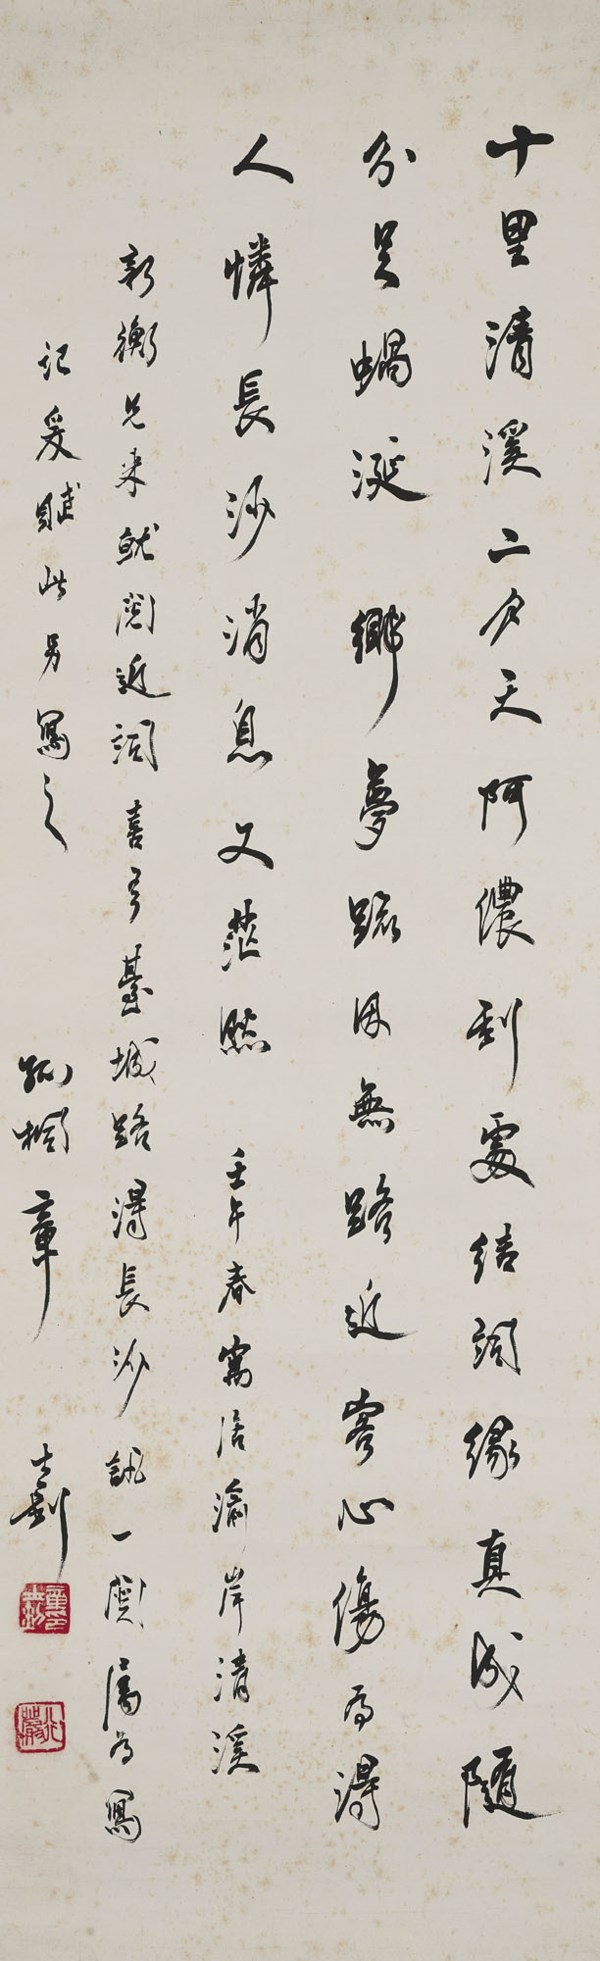 十里清溪二月天阿儂到處結詞緣真成隨
分足蝸涎 鄉夢疏因無路近客心傷為得
人憐長沙消息又茫然 壬午春寓居渝岸清溪
新衡兄來就閱近詞喜吾臺城路得長沙訊一闋屬為寫
記爰賦此另寫之
孤桐章士釗